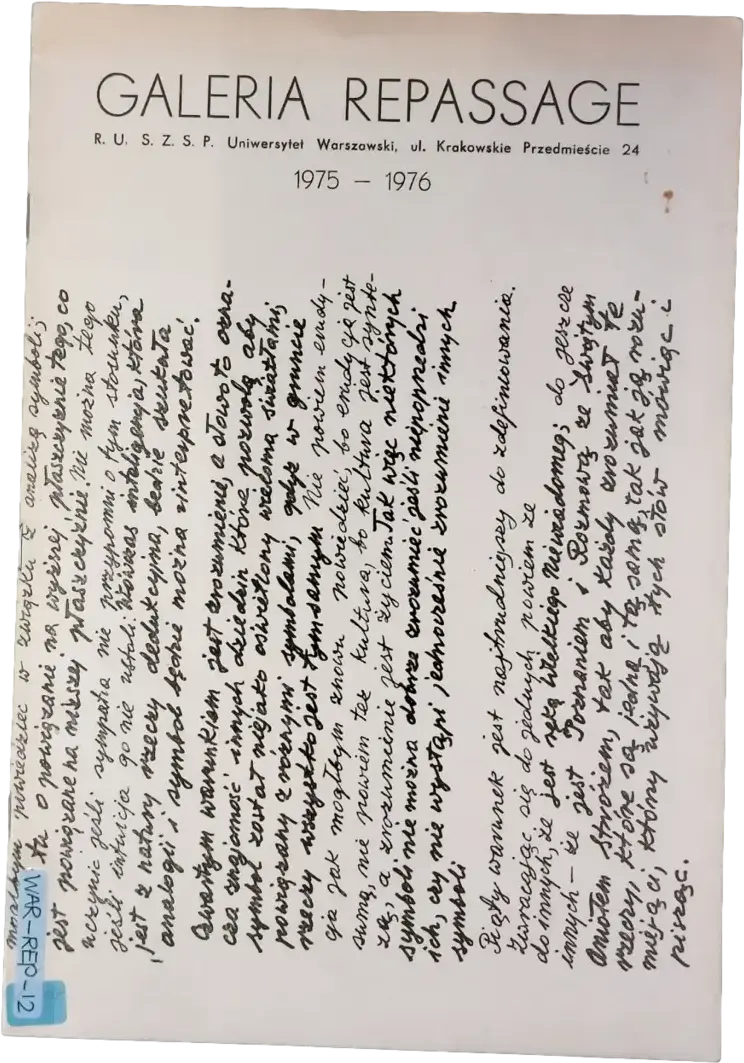 GALERIA REPASSAGE
R. U. S. Z. S. P. Uniwersytet Warszawski, ul. Krakowskie Przedmieście 24
1975 – 1976
powiedzieć w związku z analizą symboli;
tu o powiązanie na wyższej płaszczyźnie tego, co
jest powiązane na niższej płaszczyźnie. Nie można tego
uczynić jeśli sympatia nie przypomni o tym stosunku,
jeśli intuicja go nie ustali. Wówczas inteligencja, która
jest z natury rzeczy dedukcyjna, będzie szukała
analogii i symbol będzie można zinterpretować.
Czwartym warunkiem jest zrozumienie, a słowo to ozna-
cza znajomość innych dziedzin które pozwolą aby
symbol został niejako oświetlony wieloma światłami,
powiązany z różnymi symbolami, gdyż w gruncie
rzeczy wszystko jest tym samym. Nie powiem erudy-
cja jak mógłbym znowu powiedzieć, bo erudycja jest
sumą, nie powiem też kultura, bo kultura jest synte-
zą, a zrozumienie jest życiem. Tak więc niektórych
symboli nie można dobrze zrozumieć jeśli nie poprzedzi
ich, czy nie wystąpi jednocześnie zrozumienie innych
symboli
Piąty warunek jest najtrudniejszy do zdefiniowania.
Zwracając się do jednych powiem że
do innych, że jest ręką Wielkiego Niewiadomego; do jeszcze
innych – że jest Poznaniem i Rozmową ze Świętym
Aniołem Stróżem, tak aby każdy zrozumiał te
rzeczy, które są jedną i tą samą, tak jak ją rozu-
miejąc, który używają tych słów mówiąc i
pisząc.
WAR-REP-12